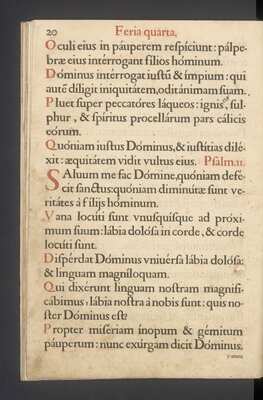 20 Feria quarta.
Oculi eius in páuperem respíciunt: pálpe-
bræ eius intérrogant fílios hóminum.
Dóminus intérrogat iustũ & ímpium: qui
autẽ díligit iniquitátem, odit ánimam suam.
Pluet super peccatóres láqueos: ignis, sul-
phur, & spíritus procellárum pars cálicis
eórum.
Quóniam iustus Dóminus, & iustítias dilé-
xit: æquitátem vidit vultus eius. Psalm. 11.
SAluum me fac Dómine, quóniam defé-
cit sanctus: quóniam diminútæ sunt ve-
ritátes á fílijs hóminum.
Vana locúti sunt vnusquísque ad próxi-
mum suum: lábia dolósa in corde, & corde
locúti sunt.
Dispérdat Dóminus vniuérsa lábia dolósa:
& linguam magníloquam.
Qui dixérunt linguam nostram magnifi-
cábimus, lábia nostra à nobis sunt: quis no-
ster Dóminus est?
Propter misériam ínopum & gémitum
páuperum: nunc exúrgam dicit Dóminus.